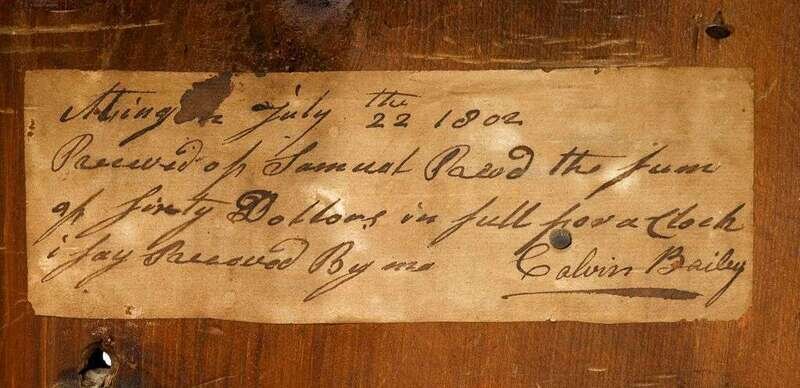 July the 22 1802
Receved of Samual Reed the sum
of sixty Dollors in full for a Clock
i say Receved By me Calvin Bailey